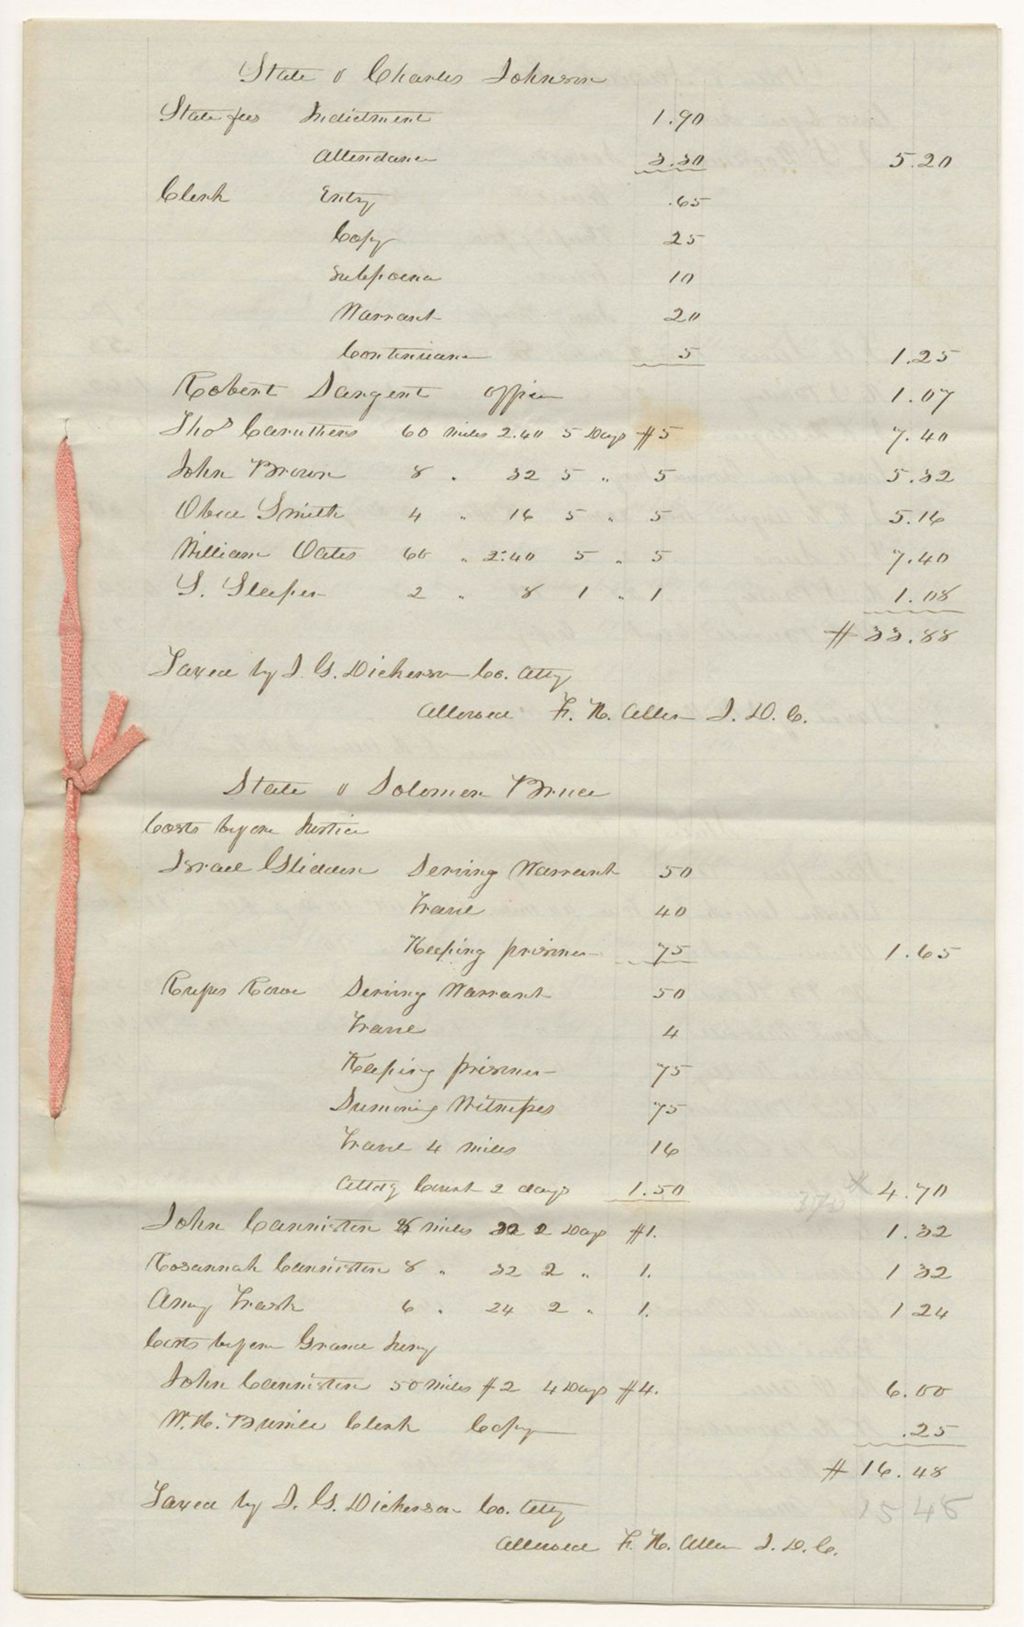 State v Charles Johnson
State fees Indictment 1.90
Attendance 3.30 5.20
Clerk Entry .65
Copy 25
Subpoena 10
Warrant 20
Continuance 5 1.25
Robert Sargent officer 1.07
Thos Caruthers 60 miles 2.40 5 Days $5 7.40
John Brown 8 " 32 5 " 5 5.32
Obed Smith 4 " 16 5 " 5 5.16
William Oates 60 " 2.40 5 " 5 7.40
S. Sleeper 2 " 8 1 " 1 1.08
$33.88
Taxed by J. G. Dickerson Co. Atty
Allowed F. H. Allen J. D. C.
State v Solomon Bruce
Costs before Justice
Israel Glidden Serving Warrant 50
Travel 40
Keeping prisoner 75 1.65
Rufus Rowe Serving Warrant 50
Travel 4
Keeping prisoner 75
Sumoning Witnesses 75
Travel 4 miles 16
Attdg Court 2 days 1.50 4.70
John Cannisten 8 miles 32 2 Days $1. 1.32
Rosannah Cannisten 8 " 32 2 " 1. 1 32
Amy Trask 6 " 24 2 " 1. 1 24
Costs before Grand Jury
John Cannisten 50 miles $2 4 Days $4. 6.00
W. H. Clerk Copy .25
$16.48
1548
Taxed by J. G. Dickerson Co. Atty
Allowed F. H. Allen J. D. C.